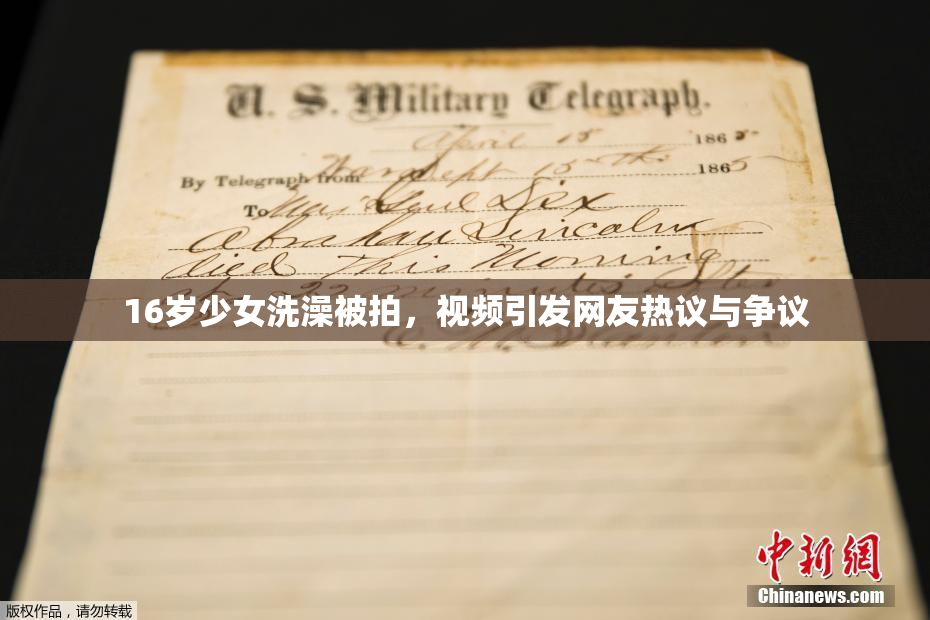 U. S. Military Telegraph.
April 15 1865
By Telegraph from War Dept 15th 1865
To Maj Genl Dix
Abraham Lincoln
died This Morning
22 minutes after
16岁少女洗澡被拍，视频引发网友热议与争议
E. M. Stanton
中新网
Chinanews.com
版权作品，请勿转载